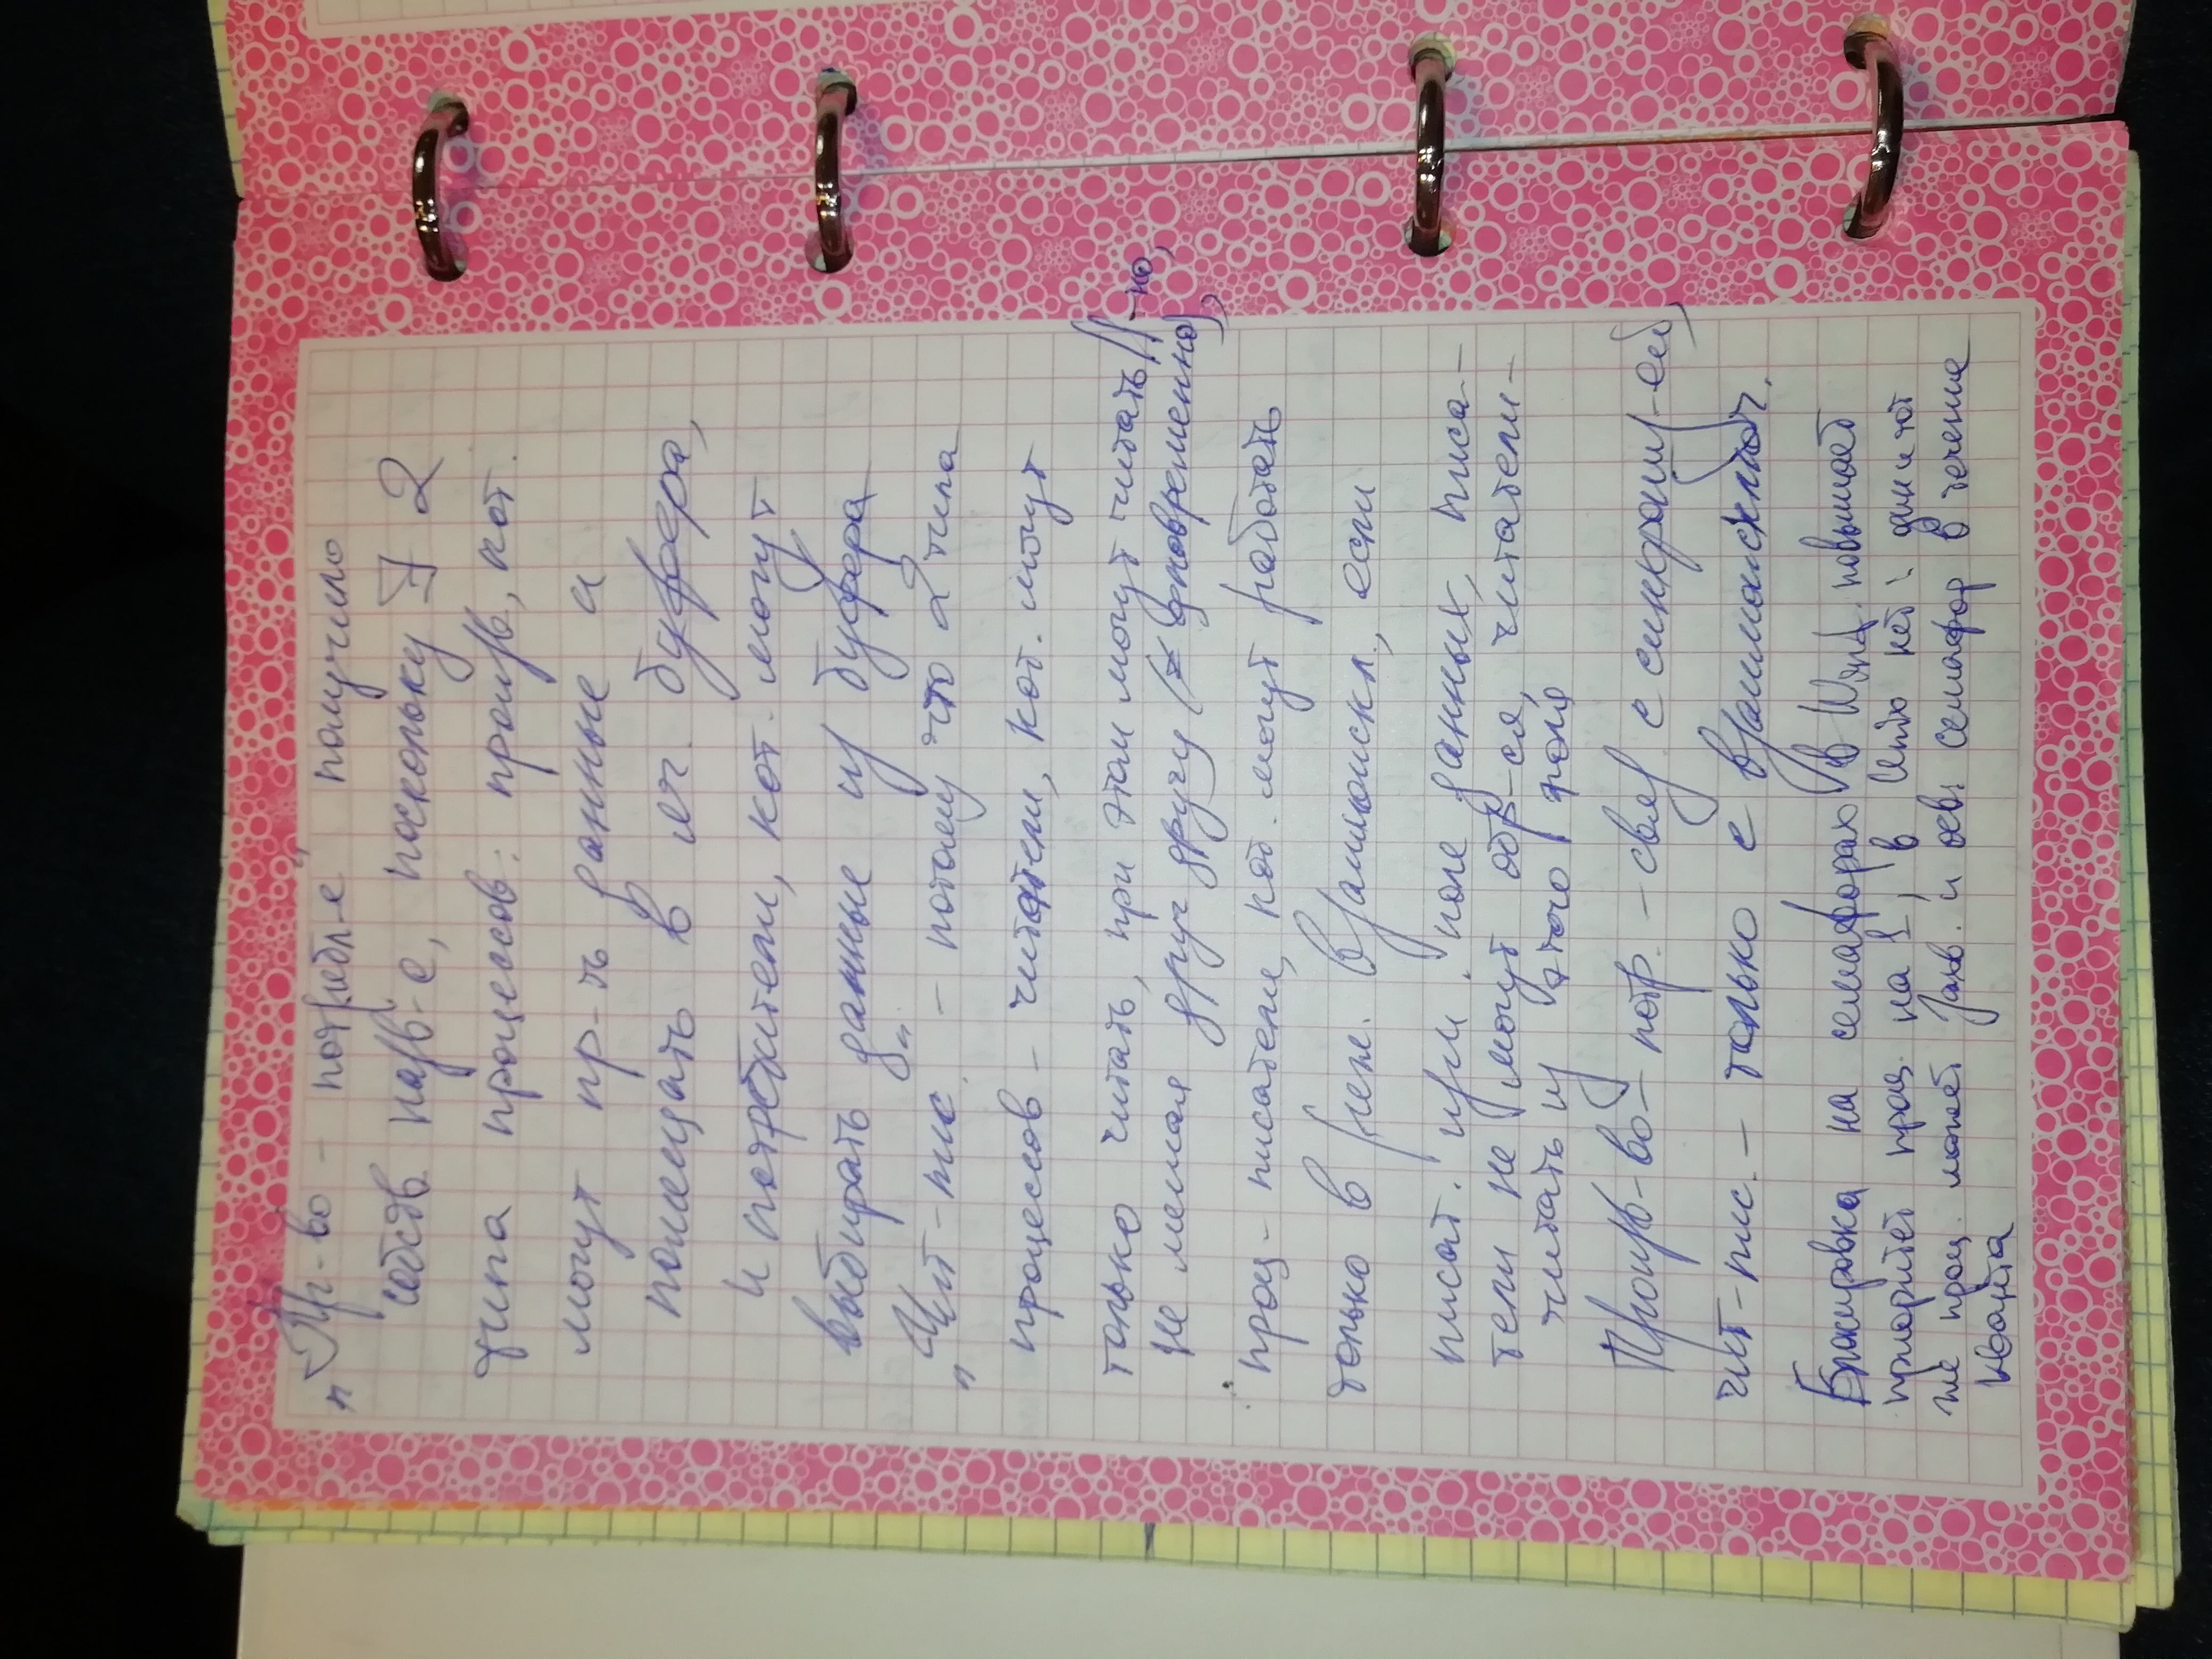 „Пр-во - потребл-е" получило
собств. назв-е, поскольку ∃ 2
типа процессов: произв, кот.
могут пр-ть данные и
помещать в яч. буфера,
и потребители, кот. могут
выбирать данные из буфера
„Чит-пис." - потому что 2 типа
процессов - читатели, кот. могут
только читать, при этом могут читать //-но,
не мешая друг другу (≠ одновременно),
проц-писатели, кот. могут работать
только в реж. взаимоискл., если
писат. изм. поле данных, писа-
тели не могут обр-ся, читатели -
читать из этого поля
Произв-во - потр. - связ. с синхрониз-ей,
чит-пис. - только с взаимоисключ.
Блокировка на семафорах в Wind. повышает
приоритет проц. на 1, в Unix нет: один и тот
же проц. может захв. и осв. семафор в течение
кванта